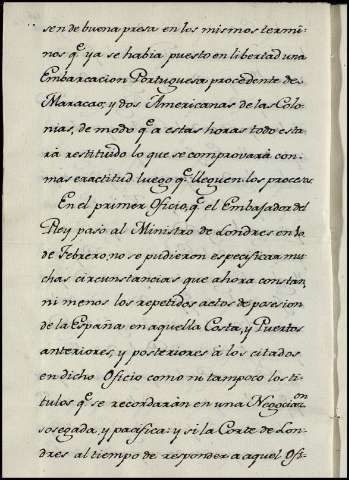 sen de buena presa en los mismos termi-
nos q.^e ya se habia puesto en libertad una
Embarcacion Portuguesa procedente de
Maracao, y dos Americanas de las Colo-
nias, de modo q.^e a estas horas todo esta-
rá restituido lo que se comprovará con
mas exactitud luego q.^e lleguen los procesos
En el primer Oficio, q.^e el Embajador del
Rey pasó al Ministro de Londres en 10.
de Febrero, no se pudieron especificar mu-
chas circunstancias que ahora constan,
ni menos los repetidos actos de posesion
de la España en aquella Costa, y Puertos
anteriores, y posteriores á los citados
en dicho Oficio como ni tampoco los ti-
tulos q.^e se recordarán en una Negociac.^on
sosegada, y pacifica: y si la Corte de Lon-
dres al tiempo de responder a aquel Ofi-